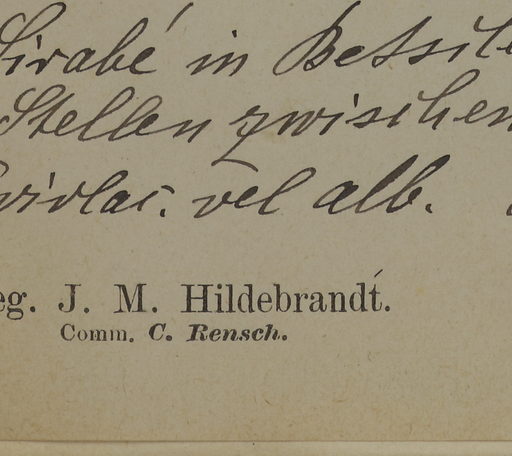 Sirabé in Betsile
Stellen zwischen
violac. vel alb.
eg. J. M. Hildebrandt.
Comm. C. Rensch.